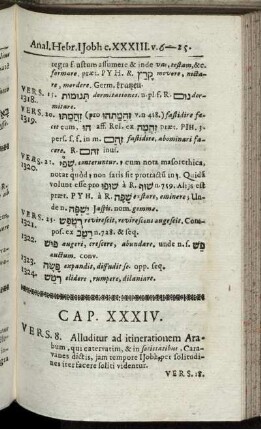 Anal. Hebr. IJobh c. XXXIII. v. 6—25.
tegra frustum assumere & inde vas, testam, &c.
formare. præt. PYH. R. קרץ movere, nictare,
mordere. Germ.
VERS. 15. תנומות dormitationes. n. pl. f. R. נום dormitare.
1318.
VERS. 20. זהמתו (pro זהמתהו v. n 418.) fastidire facere
1319. cum זהמת aff. Rei. ex præt. PIH. 3.
pers. s. f. in m. fastidire, abominari facere.
R. זהם inus.
VERS. 21. שפו conteruntur, cum nota masorethica,
1320. notat quod non satis sit protractis in. Quidã
volunt esse pro שופו à שוף n 759. Alijs est
præt. PYH. à R. שפה extare, eminere, Unde
n. ישפה Jaspis. nom. gemmæ.
1321. רטפש revirescit, revirescens augescit. Compos.
VERS. 25. ex רטב n. 728. & seq.
1322. פוש augeri, crescere, abundare, unde n. f. פש
auctum. conv.
1323. פשה expandit, diffudit se. opp. seq.
1324. רטש elidere, rumpere, dilaniare.
CAP. XXXIV.
VERS. 8. Alluditur ad itinerationem Arabum,
qui catervatim, & in societatibus Caravanes
dictis, jam tempore IJobh, per solitudines
iter facere soliti videntur.
VERS. 18.